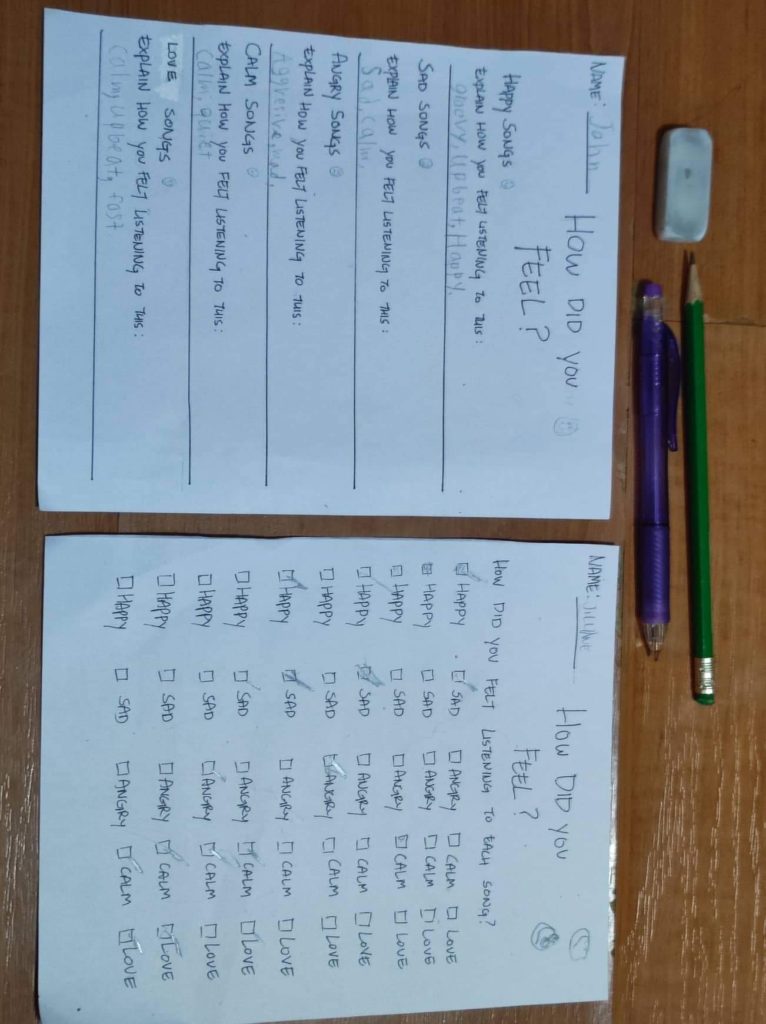 NAME: John
HOW DID YOU
FEEL?
HAPPY SONGS
EXPLAIN HOW YOU FELT LISTENING TO THIS:
groovy, upbeat, Happy.
SAD SONGS
EXPLAIN HOW YOU FELT LISTENING TO THIS:
Sad, calm.
ANGRY SONGS
EXPLAIN HOW YOU FELT LISTENING TO THIS:
Aggresive, mad.
CALM SONGS
EXPLAIN HOW YOU FELT LISTENING TO THIS:
Calm, quiet
LOVE SONGS
EXPLAIN HOW YOU FELT LISTENING TO THIS:
Calm, upbeat, fast
NAME:
HOW DID YOU
FEEL?
HOW DID YOU FELT LISTENING TO EACH SONG?
HAPPY SAD ANGRY CALM LOVE
HAPPY SAD ANGRY CALM LOVE
HAPPY SAD ANGRY CALM LOVE
HAPPY SAD ANGRY CALM LOVE
HAPPY SAD ANGRY CALM LOVE
HAPPY SAD ANGRY CALM LOVE
HAPPY SAD ANGRY CALM LOVE
HAPPY SAD ANGRY CALM LOVE
HAPPY SAD ANGRY CALM LOVE
HAPPY SAD ANGRY CALM LOVE